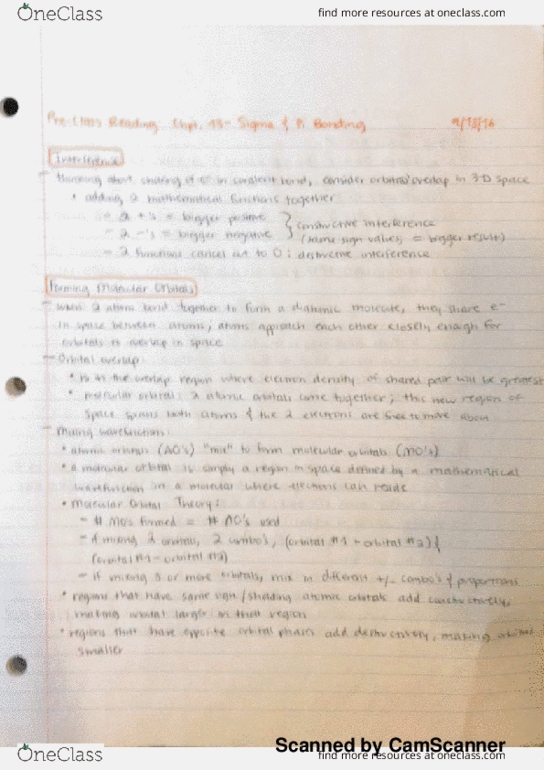 OneClass
find more resources at oneclass.com
Pre-Class Reading: Chpt. 13- Sigma & Pi Bonding 9/13/16
Interference
- thinking about sharing of e- in covalent bond, consider orbital overlap in 3D space
• adding 2 mathematical functions together
- 2 +'s = bigger positive
- 2 -'s = bigger negative
} constructive interference
(same sign values, = bigger result)
- 2 functions cancel out to 0: destructive interference
Forming Molecular Orbitals
- when 2 atoms bond together to form a diatomic molecule, they share e-
in space between atoms; atoms approach each other closely enough for
orbitals to overlap in space
- Orbital overlap:
• is in the overlap region where electron density of shared pair will be greatest
• molecular orbital: 2 atomic orbitals come together; this new region of
space spans both atoms & the 2 electrons are free to move about
- Mixing wavefunctions:
• atomic orbitals (AO's) "mix" to form molecular orbitals (MO's)
• a molecular orbital is simply a region in space defined by a mathematical
wavefunction in a molecule where electrons can reside
• Molecular Orbital Theory:
- # MO's formed = # AO's used
- if mixing 2 orbitals, 2 combo's, (orbital #1 + orbital #2) &
(orbital #1 - orbital #2)
- if mixing 3 or more orbitals, mix in different +/- combo's & proportions
• regions that have same sign/shading atomic orbitals add constructively,
making orbital larger in that region
• regions that have opposite orbital phases add destructively, making orbitals
smaller
Scanned by CamScanner
OneClass
find more resources at oneclass.com